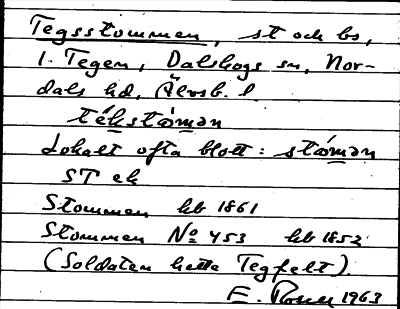 Tegsstommen, st och bs,
1. Tegen, Dalskogs sn, Nor-
dals hd, Älvsb. l
tékstámən
Lokalt ofta blott: stámən
ST ek
Stommen hb 1861
Stommen No 453 hb 1852
(Soldaten hette Tegfelt).
E. 1963